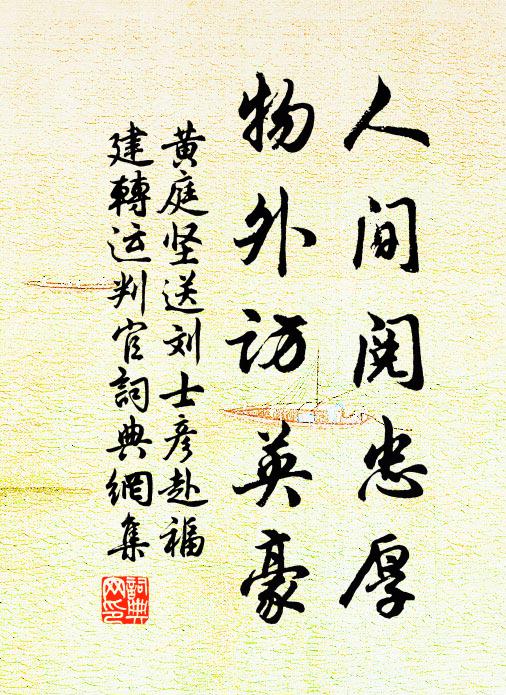 人间阅忠厚
物外访英豪
黄庭坚送刘士彦赴福
建轉运判官詞典網集
詞典
网印